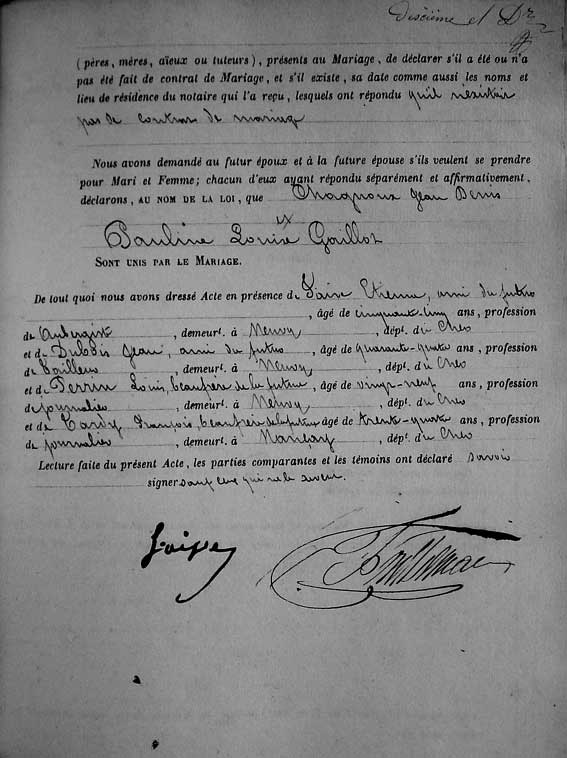 Dixième et D
( pères, mères, aïeux ou tuteurs ), présents au Mariage, de déclarer s'il a été ou n'a
pas été fait de contrat de Mariage, et s'il existe, sa date comme aussi les noms et
lieu de résidence du notaire qui l'a reçu, lesquels ont répondu qu'il n'existait
pas de contrat de mariage
Nous avons demandé au futur époux et à la future épouse s'ils veulent se prendre
pour Mari et Femme; chacun d'eux ayant répondu séparément et affirmativement,
déclarons, AU NOM DE LA LOI, que Chagnoux Jean Denis
Et
Pauline Louise Gaillot
SONT UNIS PAR LE MARIAGE.
De tout quoi nous avons dressé Acte en présence de Etienne, ami du futur
, âgé de cinquante-cinq ans, profession
de Aubergiste , demeurt. à Menvoy , dépt. du Cher
et de Dubois Jean, ami du futur , âgé de quarante-quatre ans, profession
de tailleur , demeurt. à , dépt. du Cher
et de Perrin Louis, beau frère de la future , âgé de vingt-neuf ans, profession
de journalier , demeurt. à , dépt. du Cher
et de Tardy François, beau frère de la future âgé de trente-quatre ans, profession
de journalier , demeurt. à , dépt. du Cher
Lecture faite du présent Acte, les parties comparantes et les témoins ont déclaré savoir
signer sauf ceux qui ne le savent.